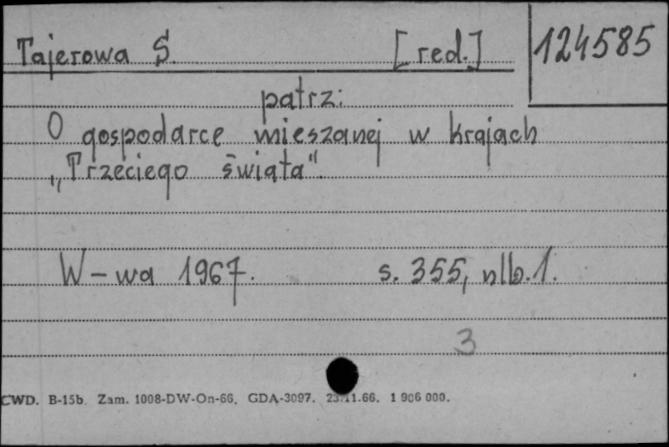 Tajerowa S. [red.] 124585
patrz:
O gospodarce mieszanej w krajach
„Trzeciego świata".
W-wa 1967. s. 355, nlb. 1.
3
CWD. B-15b. Zam. 1008-DW-On-66. GDA-3097. 23.11.66. 1 906 000.